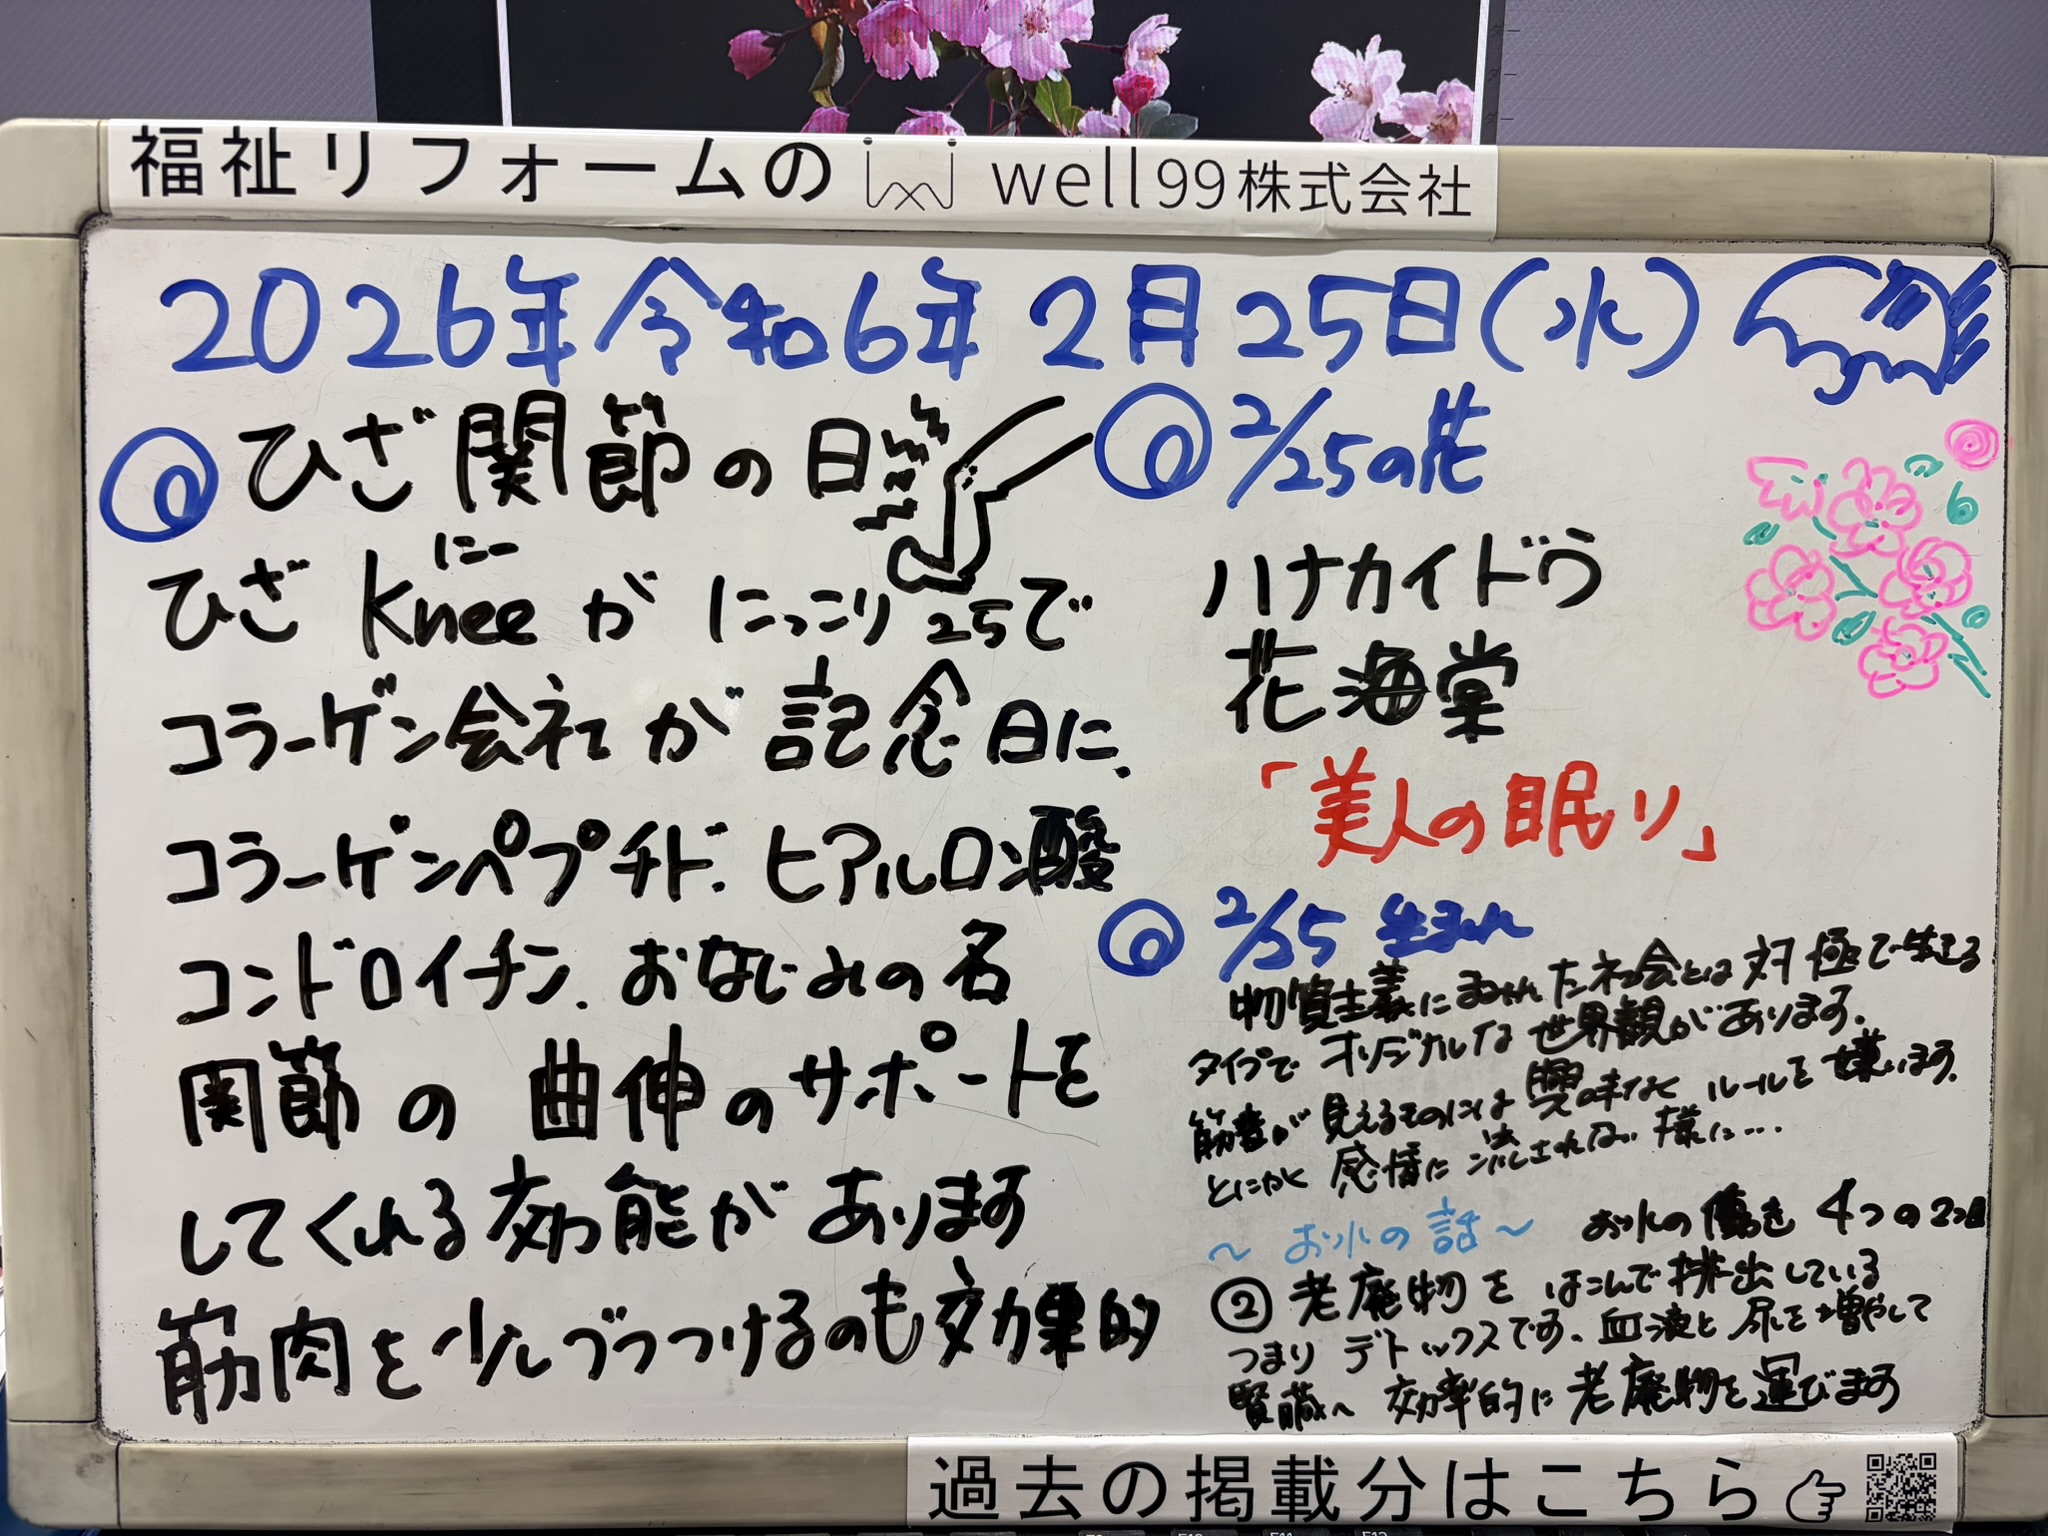 福祉リフォームの well99株式会社
2026年令和6年 2月25日(水)
ひざ関節の日
ひざ Knee が にっこり 25で
にー
コラーゲン会社が記念日に.
コラーゲンペプチド. ヒアルロン酸
コンドロイチン. おなじみの名
関節の曲伸のサポートを
してくれる効能があります
筋肉を少しづつつけるのも効果的
2/25の花
ハナカイドウ
花海棠
「美人の眠り」
2/25 生まれ
物質主義にまみれた社会とは対極で生きる
タイプで オリジナルな世界観があります.
筋書が見えるものには興味なく ルールを嫌います.
とにかく感情に流されない様に…
～お水の話～ お水の働き 4つの2つ目
② 老廃物を はこんで排出している
つまり デトックスです. 血液と 尿を増やして
腎臓へ 効率的に老廃物を運びます
過去の掲載分はこちら